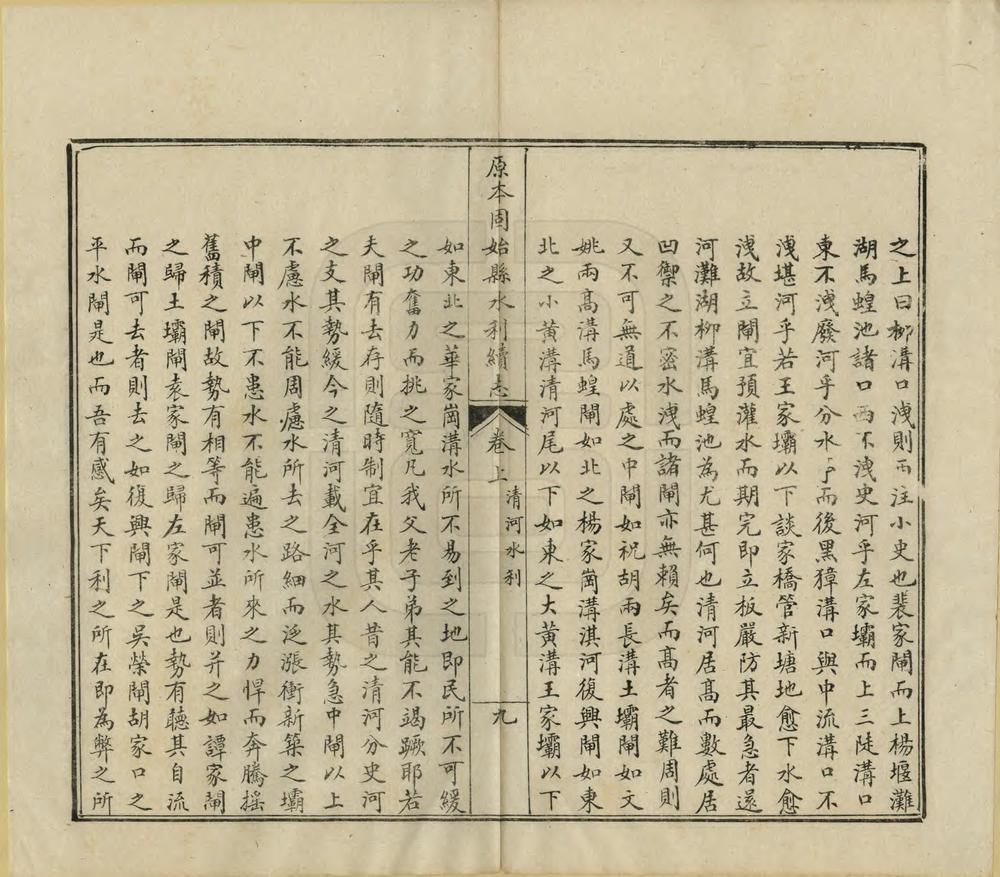 之上曰柳溝口洩則西注小史也裴家閘而上楊堰灘
湖馬蝗池諸口西不洩史河乎左家壩而上三陡溝口
東不洩廢河乎分水亭而後黑獐溝口與中流溝口不
洩堪河乎若王家壩以下談家橋管新塘地愈下水愈
洩故立閘宜預灌水而期完即立板嚴防其最急者還
河灘湖柳溝馬蝗池為尤甚何也清河居高而數處居
凹禦之不密水洩而諸閘亦無賴矣而高者之難周則
又不可無道以處之中閘如祝胡兩長溝土壩閘如文
姚兩高溝馬蝗閘如北之楊家崗溝淇河復興閘如東
北之小黄溝清河尾以下如東之大黄溝王家壩以下
原本固始縣水利續志 卷上 清河水利 九
如東北之華家崗溝水所不易到之地即民所不可緩
之功奮力而挑之寬凡我父老子弟其能不竭蹶耶若
夫閘有去存則隨時制宜在乎其人昔之清河分史河
之支其勢緩今之清河載全河之水其勢急中閘以上
不慮水不能周慮水所去之路細而泛漲衝新築之壩
中閘以下不患水不能遍患水所來之力悍而奔騰摇
舊積之閘故勢有相等而閘可並者則并之如譚家閘
之歸土壩閘袁家閘之歸左家閘是也勢有聽其自流
而閘可去者則去之如復興閘下之吳榮閘胡家口之
平水閘是也而吾有感矣天下利之所在即為弊之所